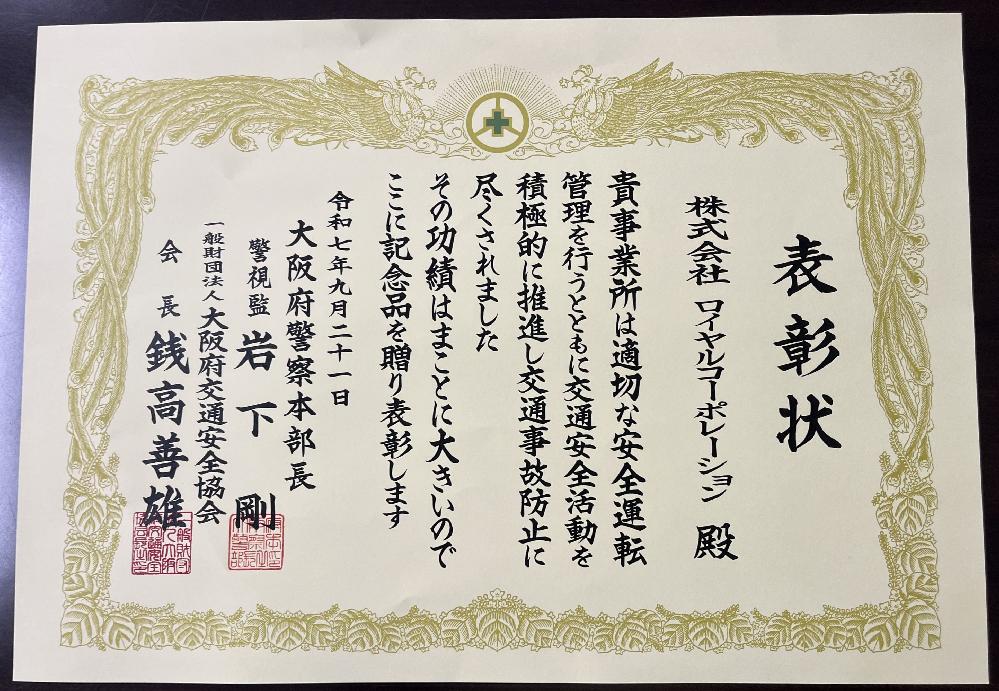 表彰状
株式会社 ロイヤルコーポレーション 殿
貴事業所は適切な安全運転
管理を行うとともに交通安全活動を
積極的に推進し交通事故防止に
尽くされました
その功績はまことに大きいので
ここに記念品を贈り表彰します
令和七年九月二十一日
大阪府警察本部長
警視監 岩下 剛
一般財団法人大阪府交通安全協会
会長 銭高善雄